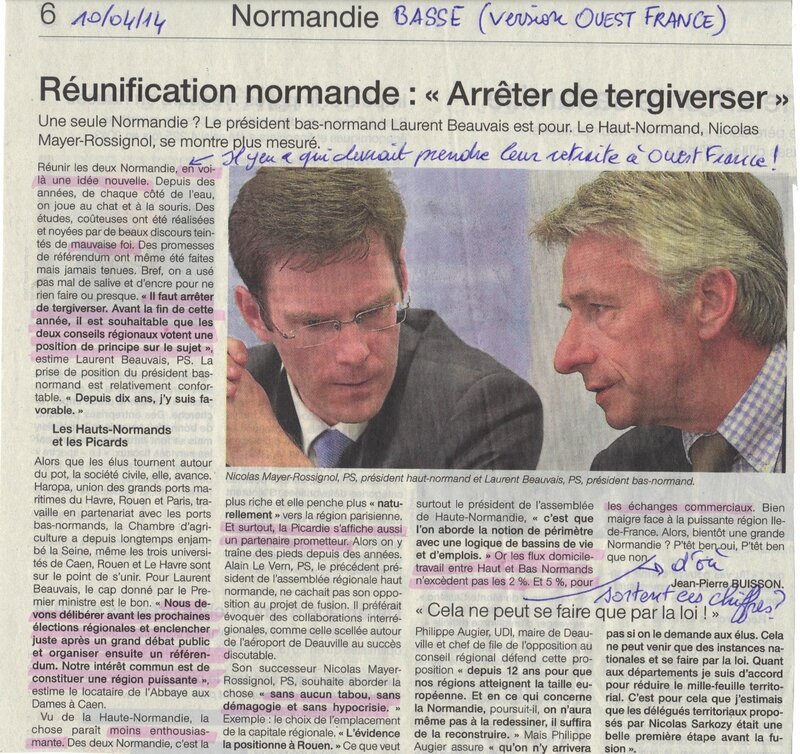 6 10/04/14 Normandie BASSE (version OUEST FRANCE)
Réunification normande : « Arrêter de tergiverser »
Une seule Normandie ? Le président bas-normand Laurent Beauvais est pour. Le Haut-Normand, Nicolas
Mayer-Rossignol, se montre plus mesuré.
Il y en a qui devrait prendre leur retraite à Ouest France !
Réunir les deux Normandie, en voi-
là une idée nouvelle. Depuis des
années, de chaque côté de l'eau,
on joue au chat et à la souris. Des
études, coûteuses ont été réalisées
et noyées par de beaux discours tein-
tés de mauvaise foi. Des promesses
de référendum ont même été faites
mais jamais tenues. Bref, on a usé
pas mal de salive et d'encre pour ne
rien faire ou presque. « Il faut arrêter
de tergiverser. Avant la fin de cette
année, il est souhaitable que les
deux conseils régionaux votent une
position de principe sur le sujet »,
estime Laurent Beauvais, PS. La
prise de position du président bas-
normand est relativement confor-
table. « Depuis dix ans, j'y suis fa-
vorable. »
Les Hauts-Normands
et les Picards
Alors que les élus tournent autour
du pot, la société civile, elle, avance.
Haropa, union des grands ports ma-
ritimes du Havre, Rouen et Paris, tra-
vaille en partenariat avec les ports
bas-normands, la Chambre d'agri-
culture a depuis longtemps enjam-
bé la Seine, même les trois universi-
tés de Caen, Rouen et Le Havre sont
sur le point de s'unir. Pour Laurent
Beauvais, le cap donné par le Pre-
mier ministre est le bon. « Nous de-
vons délibérer avant les prochaines
élections régionales et enclencher
juste après un grand débat public
et organiser ensuite un référen-
dum. Notre intérêt commun est de
constituer une région puissante »,
estime le locataire de l'Abbaye aux
Dames à Caen.
Vu de la Haute-Normandie, la
chose parait moins enthousias-
mante. Des deux Normandie, c'est la
Nicolas Mayer-Rossignol, PS, président haut-normand et Laurent Beauvais, PS, président bas-normand.
plus riche et elle penche plus « natu-
rellement » vers la région parisienne.
Et surtout, la Picardie s'affiche aussi
un partenaire prometteur. Alors on y
traîne des pieds depuis des années.
Alain Le Vern, PS, le précédent pré-
sident de l'assemblée régionale haut
normande, ne cachait pas son oppo-
sition au projet de fusion. Il préférait
évoquer des collaborations interré-
gionales, comme celle scellée autour
de l'aéroport de Deauville au succès
discutable.
Son successeur Nicolas Mayer-
Rossignol, PS, souhaite aborder la
chose « sans aucun tabou, sans
démagogie et sans hypocrisie. »
Exemple : le choix de l'emplacement
de la capitale régionale. « L'évidence
la positionne à Rouen. » Ce que veut
surtout le président de l'assemblée
de Haute-Normandie, « c'est que
l'on aborde la notion de périmètre
avec une logique de bassins de vie
et d'emplois. » Or les flux domicile-
travail entre Haut et Bas Normands
n'excèdent pas les 2 %. Et 5 %, pour
les échanges commerciaux. Bien
maigre face à la puissante région Ile-
de-France. Alors, bientôt une grande
Normandie ? P'têt ben oui, P'têt ben
que non.
Jean-Pierre BUISSON.
d'où
sortent ces chiffres ?
« Cela ne peut se faire que par la loi ! »
Philippe Augier, UDI, maire de Deau-
ville et chef de file de l'opposition au
conseil régional défend cette pro-
position « depuis 12 ans pour que
nos régions atteignent la taille eu-
ropéenne. Et en ce qui concerne
la Normandie, poursuit-il, on n'aura
même pas à la redessiner, il suffira
de la reconstruire. » Mais Philippe
Augier assure « qu'on n'y arrivera
pas si on le demande aux élus. Cela
ne peut venir que des instances na-
tionales et se faire par la loi. Quant
aux départements je suis d'accord
pour réduire le mille-feuille territo-
rial. C'est pour cela que j'estimais
que les délégués territoriaux propo-
sés par Nicolas Sarkozy était une
belle première étape avant la fu-
sion ».